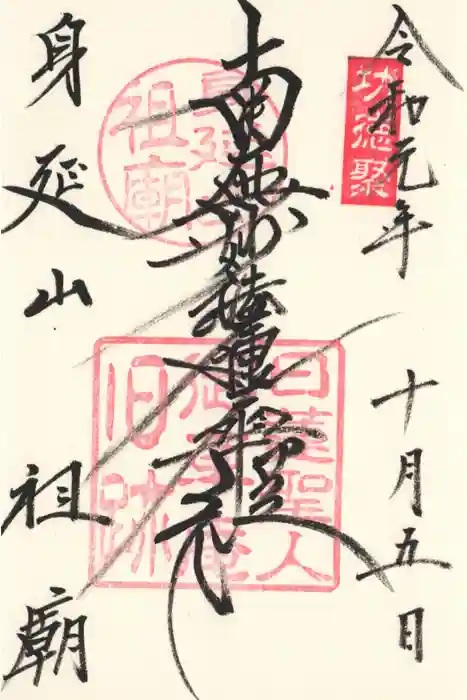 令和元年 十月五日
功徳聚
南無妙法蓮華経
身延山
祖廟
日蓮聖人
御草庵
旧跡
身延山 祖廟